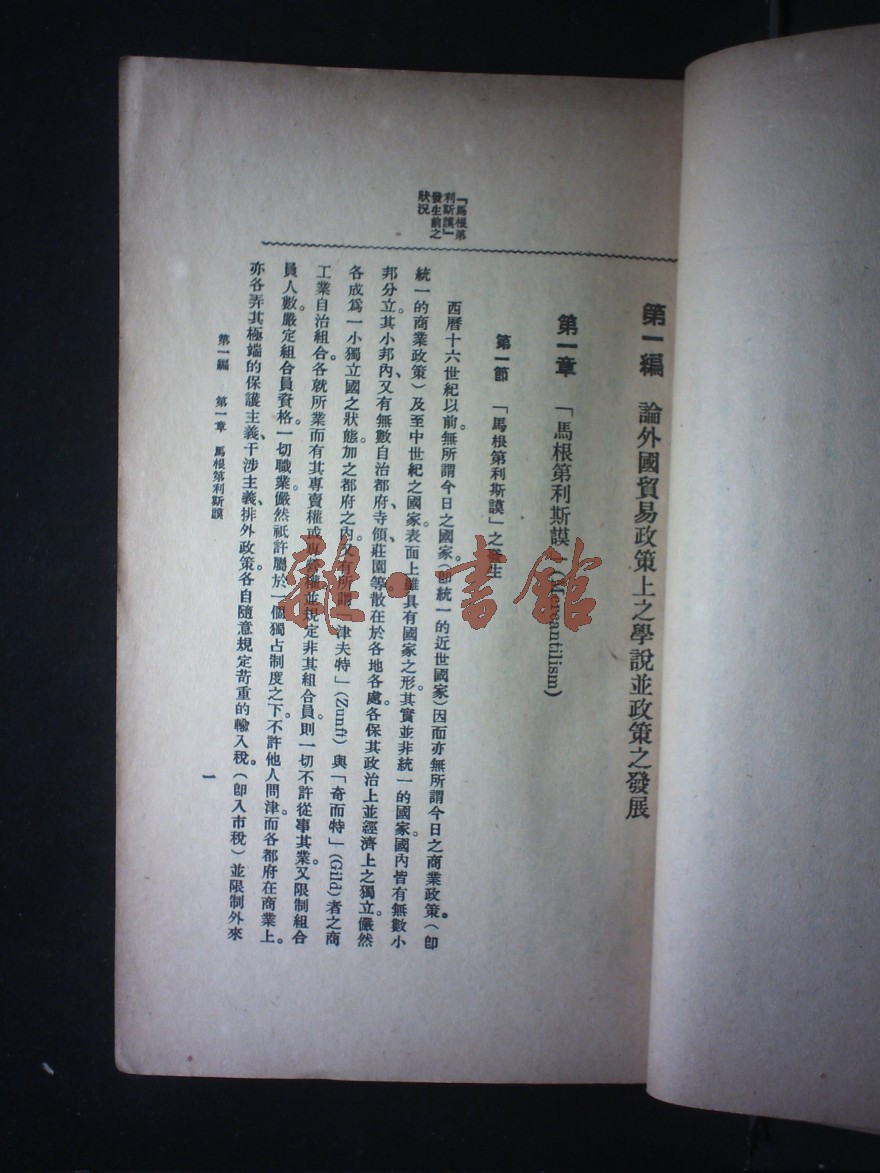 第一編　論外國貿易政策上之學說並政策之發展
第一章　「馬根第利斯謨」(Mercantilism)
第一節　「馬根第利斯謨」之發生
「馬根第
利斯謨」
發生前之
狀況
西曆十六世紀以前。無所謂今日之國家(即統一的近世國家)因而亦無所謂今日之商業政策。(即
統一的商業政策)及至中世紀之國家。表面上雖具有國家之形。其實並非統一的國家。國內皆有無數小
邦分立。其小邦內、又有無數自治都府、寺領、莊園等。散在於各地各處。各保其政治上並經濟上之獨立。儼然
各成爲一小獨立國之狀態。加之都府之內。又有所謂「津夫特」(Zunft)與「奇而特」(Gild)者之商
工業自治組合。各就所業而有其專賣權或專營權。並規定非其組合員。則一切不許從事其業。又限制組合
員人數。嚴定組合員資格。一切職業儼然祇許屬於一個獨占制度之下。不許他人問津。而各都府在商業上。
亦各弄其極端的保護主義、干涉主義、排外政策。各自隨意規定苛重的輸入稅。(即入市稅)並限制外來
第一編　第一章　馬根第利斯謨
一
雜·書館